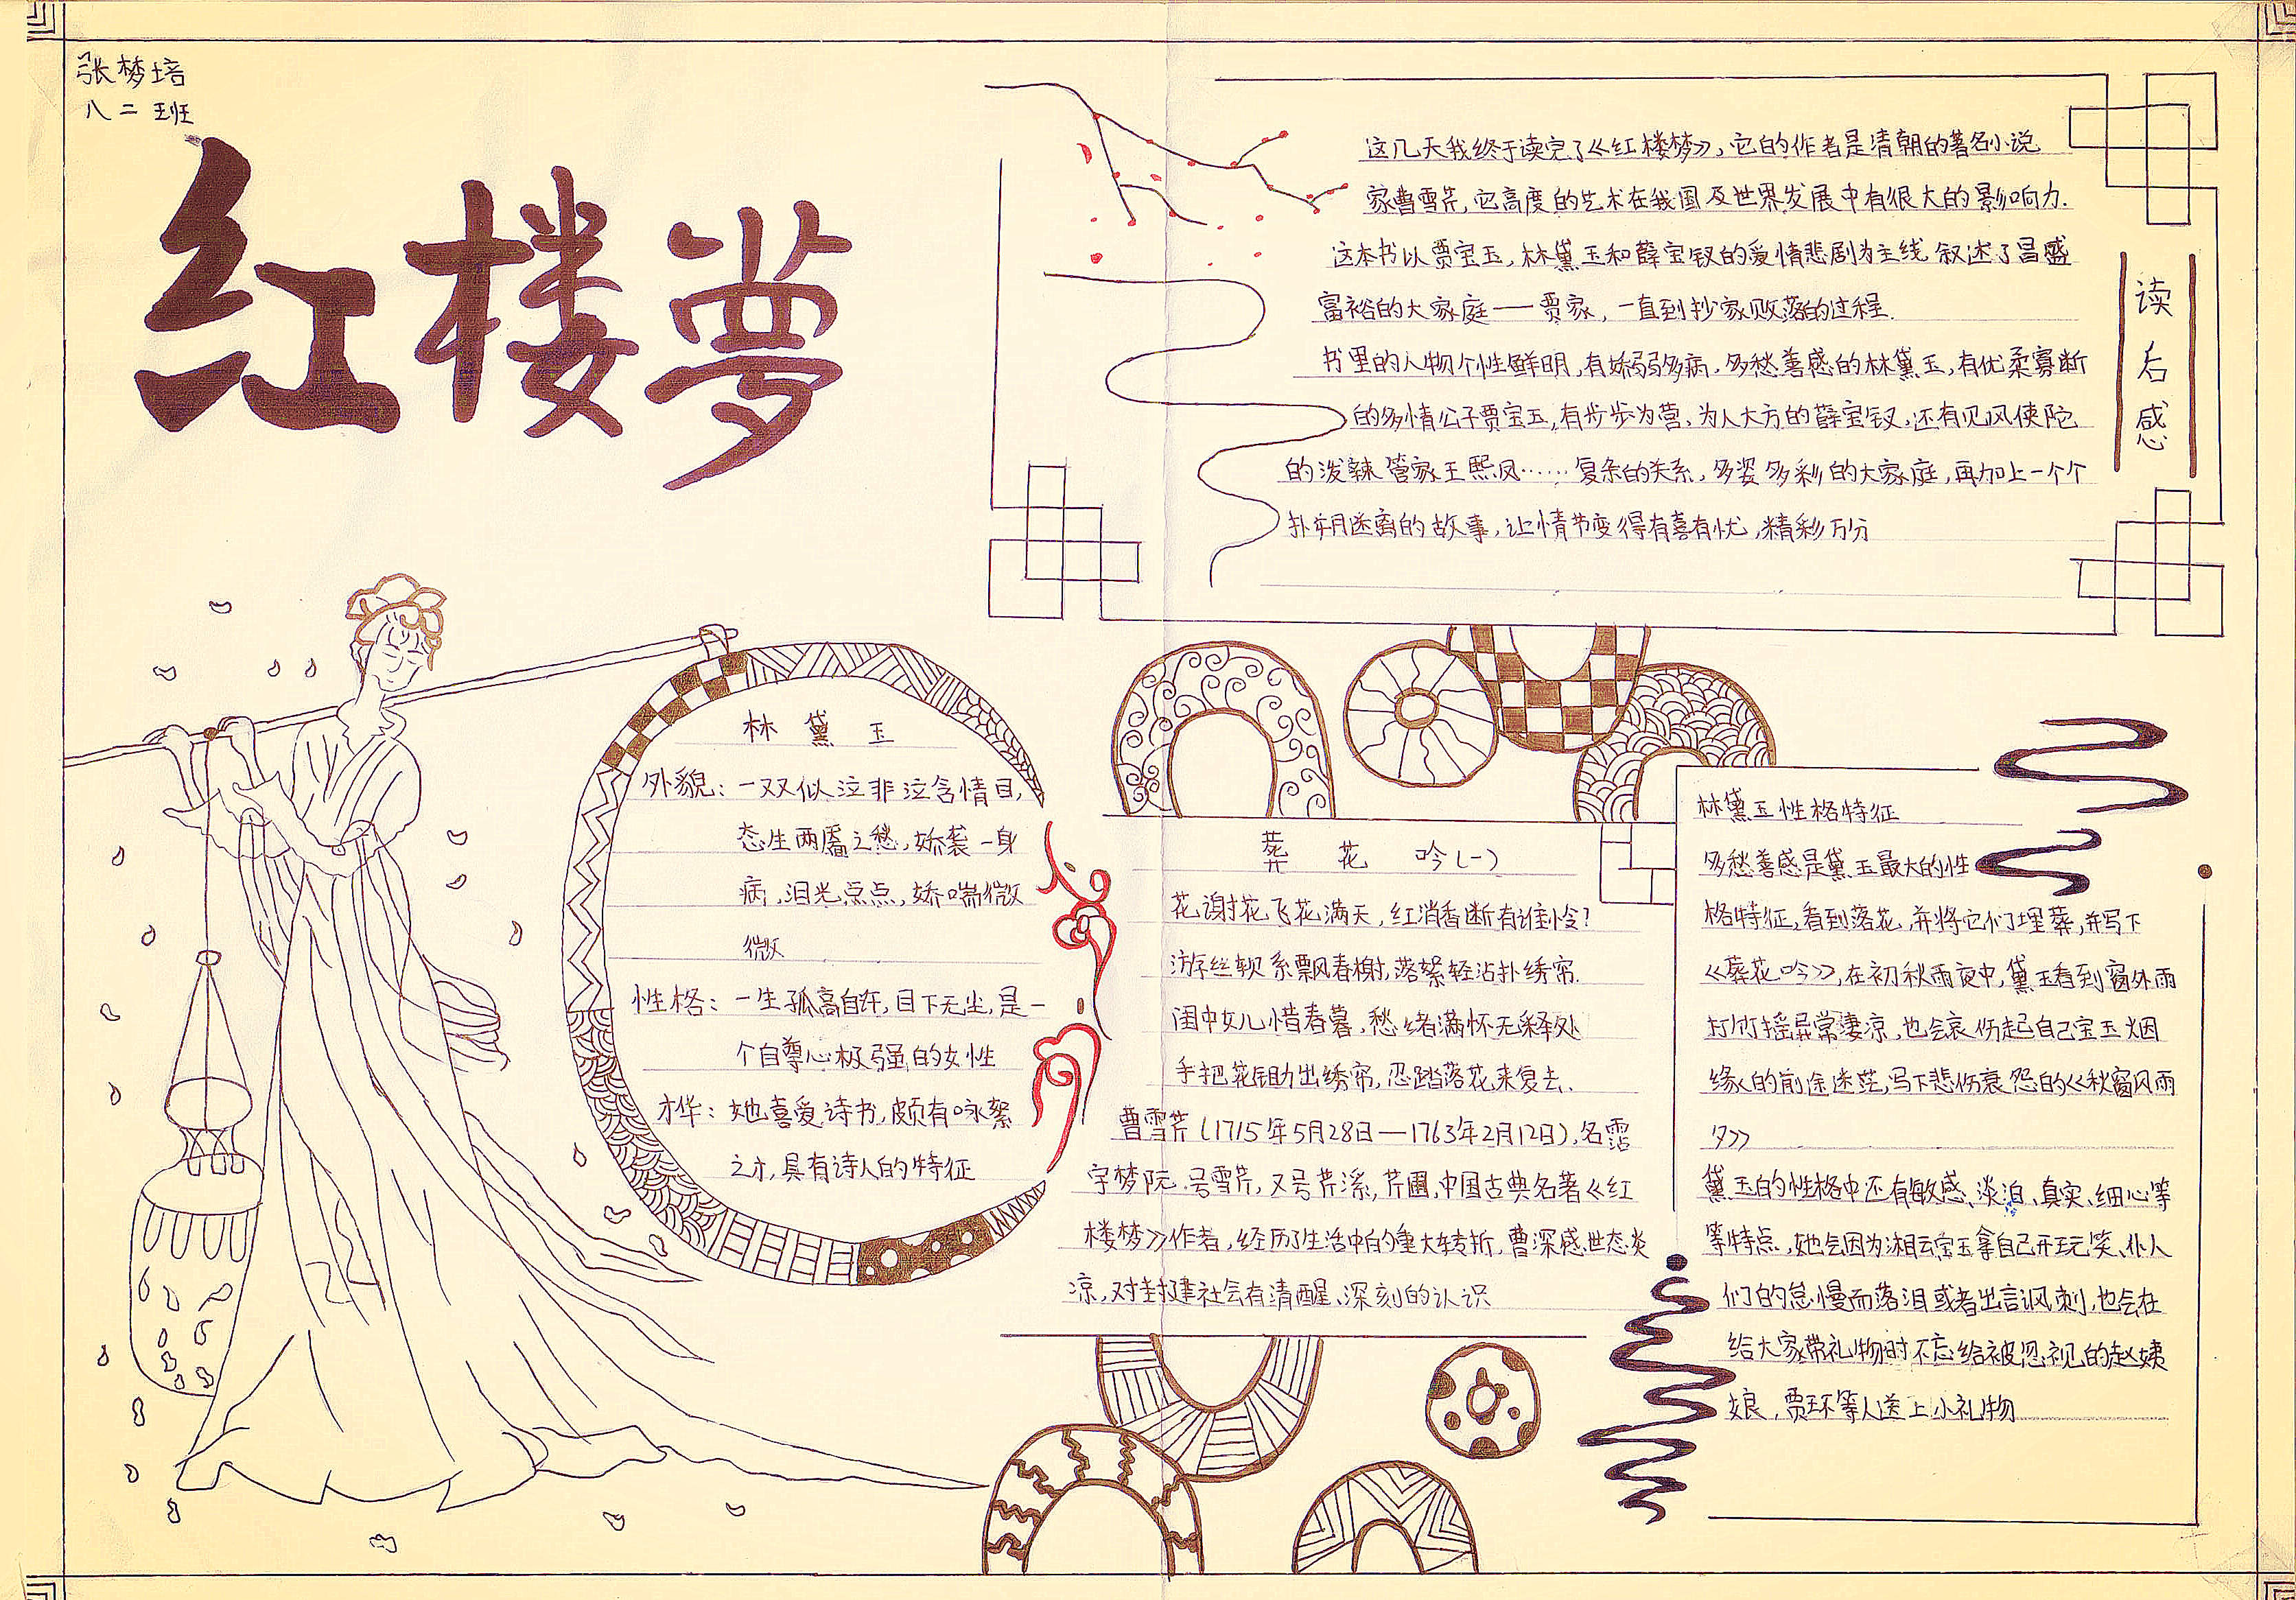 张梦培
八二班
红楼梦
这几天我终于读完了《红楼梦》,它的作者是清朝的著名小说
家曹雪芹,它高度的艺术在我国及世界发展中有很大的影响力.
这本书以贾宝玉,林黛玉和薛宝钗的爱情悲剧为主线 叙述了昌盛
富裕的大家庭——贾家,一直到抄家败落的过程.
书里的人物个性鲜明,有娇弱多病,多愁善感的林黛玉,有优柔寡断
的多情公子贾宝玉,有步步为营、为人大方的薛宝钗,还有见风使陀
的泼辣管家王熙凤……复杂的关系,多姿多彩的大家庭,再加上一个个
扑朔迷离的故事,让情节变得有喜有忧,精彩万分
读后感
林黛玉
外貌:一双似泣非泣含情目,
态生两靥之愁,娇袭一身
病,泪光点点,娇喘微
微
性格:一生孤高自许,目下无尘,是一
个自尊心极强的女性
才华:她喜爱诗书,颇有咏絮
之才,具有诗人的特征
葬花吟(一)
花谢花飞花满天,红消香断有谁怜?
游丝软系飘春榭,落絮轻沾扑绣帘.
闺中女儿惜春暮,愁绪满怀无释处
手把花锄出绣帘,忍踏落花来复去.
曹雪芹(1715年5月28日—1763年2月12日),名霑
字梦阮.号雪芹,又号芹溪,芹圃,中国古典名著《红
楼梦》作者,经历了生活中的重大转折,曹深感世态炎
凉,对封建社会有清醒、深刻的认识
林黛玉性格特征
多愁善感是黛玉最大的性
格特征,看到落花,并将它们埋葬,并写下
《葬花吟》,在初秋雨夜中,黛玉看到窗外雨
打竹摇异常凄凉,也会哀伤起自己宝玉烟
缘人的前途迷茫,写下悲伤哀怨的《秋窗风雨
夕》
黛玉的性格中还有敏感、淡泊、真实、细心等
等特点,她会因为湘云宝玉拿自己开玩笑、仆人
们的怠慢而落泪或者出言讽刺,也会在
给大家带礼物时不忘给被忽视的赵姨
娘,贾环等人送上小礼物